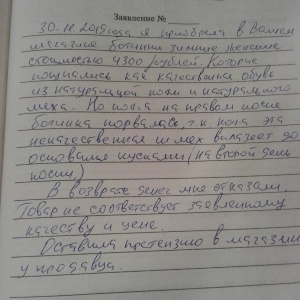 Заявление №
30. 10. 2019 года я приобрела в Вашем
магазине ботинки зимние женские
стоимостью 4300 рублей. Которые
позиционировались как качественная обувь
из натуральной кожи и натурального
меха. Но кожа на правом носке
ботинка порвалась, т.к кожа эта
некачественная и мех вылезает до
основания кусками (на второй день
носки)
В возврате денег мне отказали.
Товар не соответствует заявленному
качеству и цене.
Оставила претензию в магазине
у продавца.